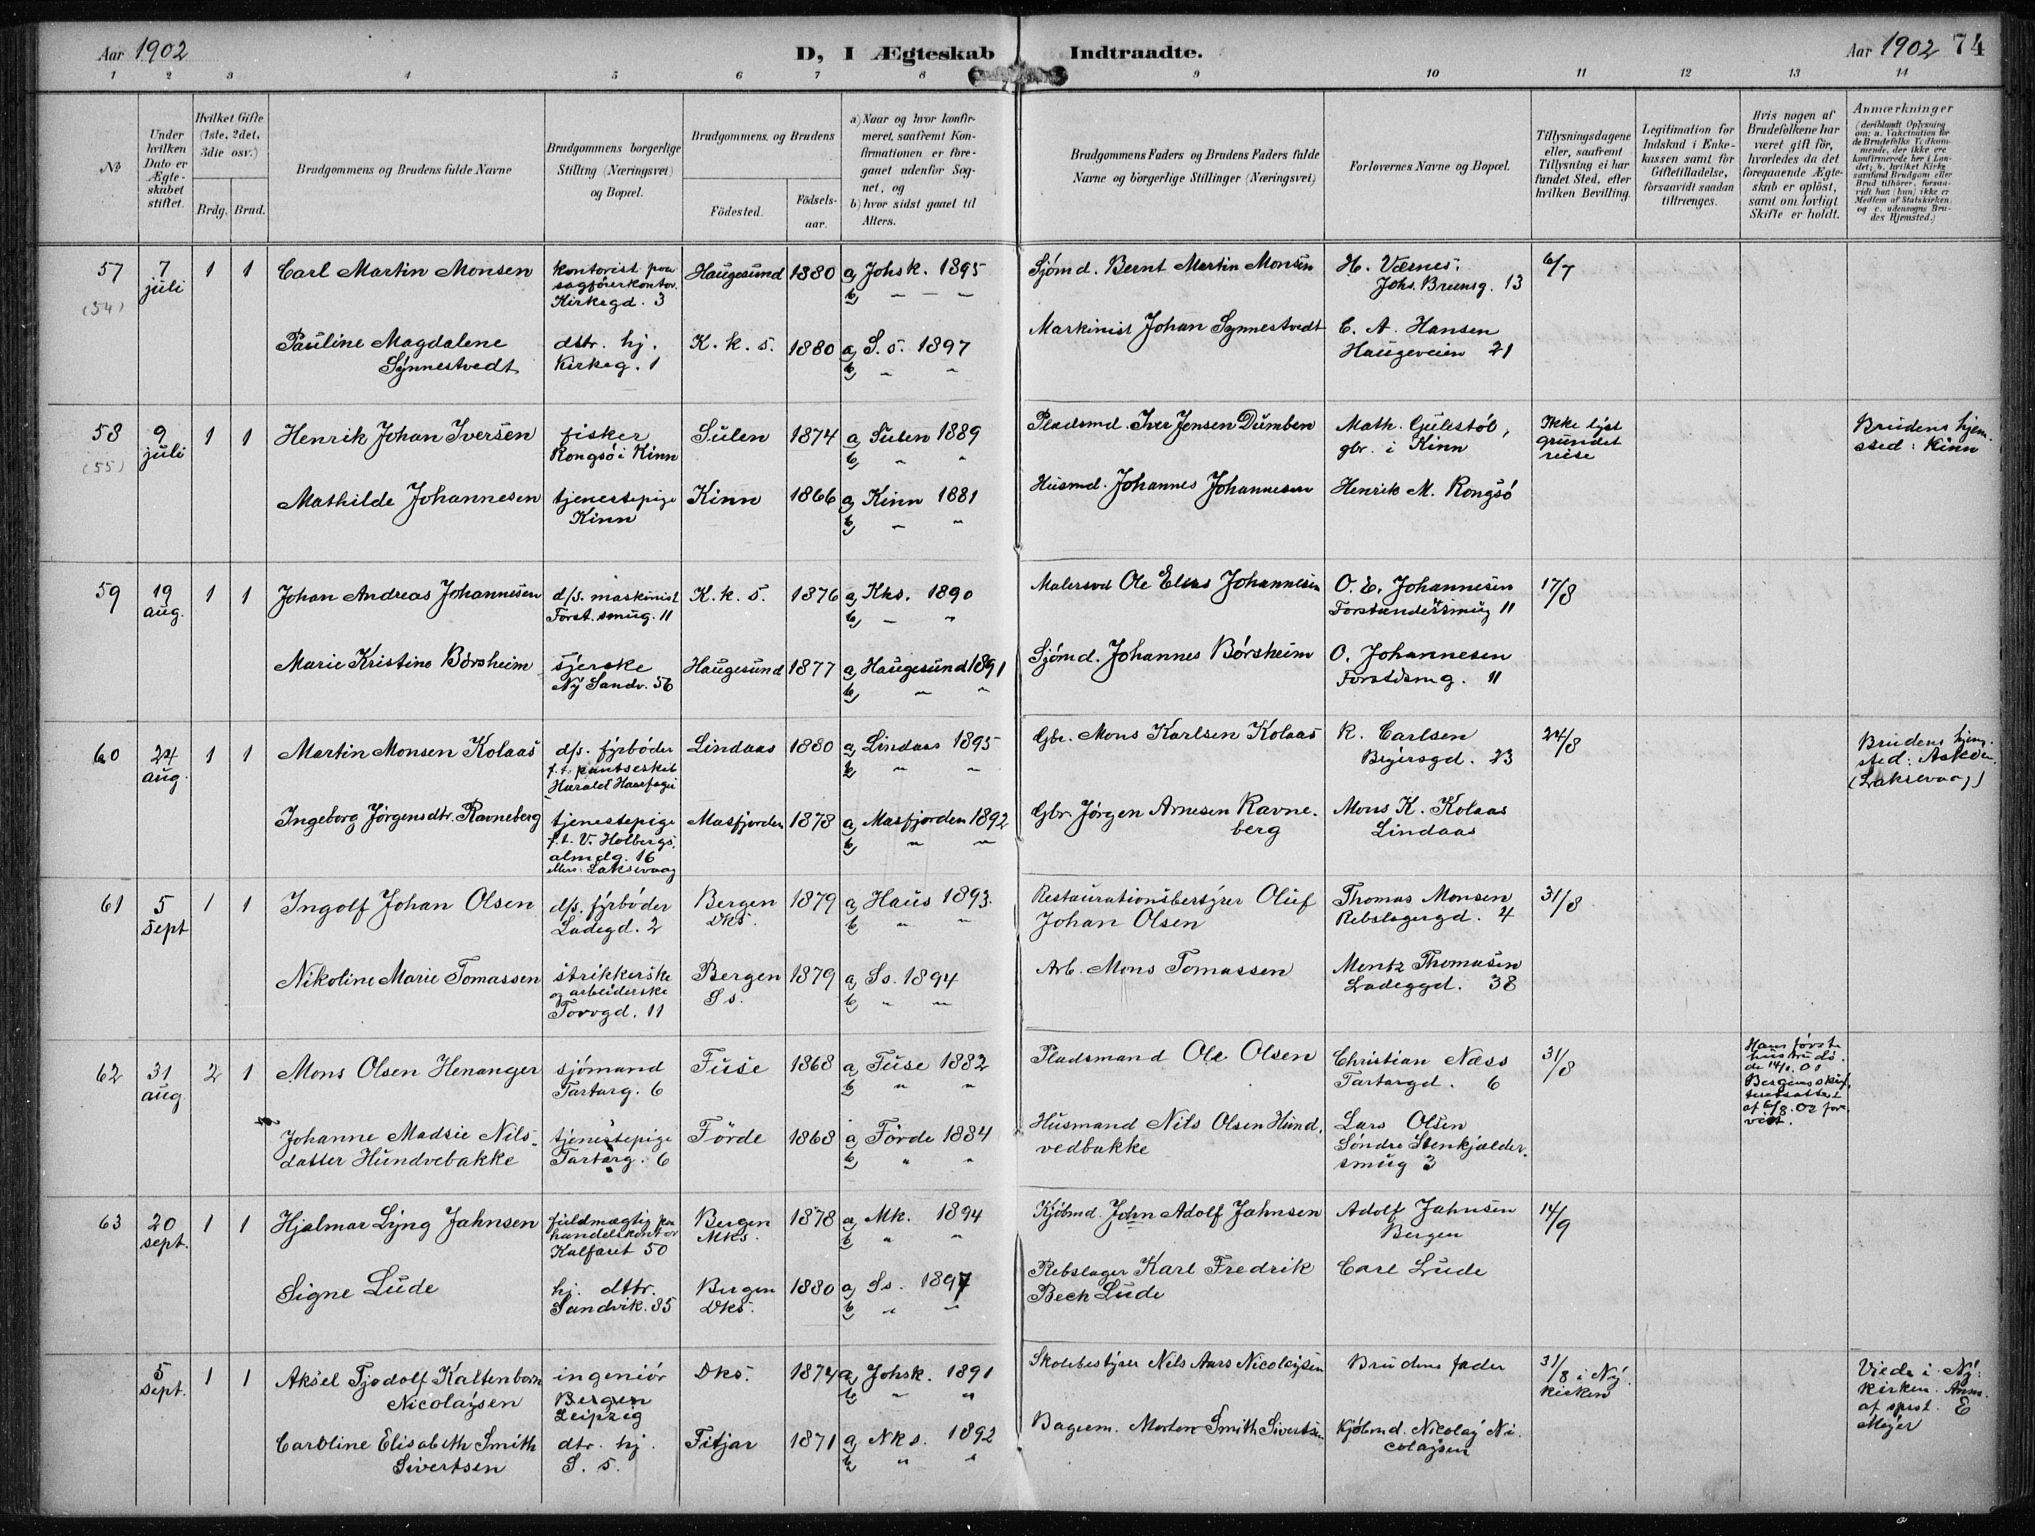 Aar 1902
D, I Ægteskab Indtraadte.
Aar 1902 74
1 2 3 4 5 6 7 8 9 10 11 12 13 14
No
Under hvilken Dato er Ægteskabet stiftet.
Hvilket Gifte (1ste, 2det, 3die osv.)
Brdg. Brud.
Brudgommens og Brudens fulde Navne
Brudgommens borgerlige Stilling (Næringsvei) og Bopæl.
Brudgommens og Brudens
Födested.
Födselsaar.
a) Naar og hvor konfirmeret, saafremt Konfirmationen er foregaaet udenfor Sognet, og
b) hvor sidst gaaet til Alters.
Brudgommens Faders og Brudens Faders fulde Navne og borgerlige Stillinger (Næringsvei)
Forlovernes Navne og Bopæl.
Tillysningsdagene eller, saafremt Tillysning ei har fundet Sted, efter hvilken Bevilling.
Legitimation for Indskud i Enkekassen samt for Giftetilladelse, forsaavidt saadan tiltrænges.
Hvis nogen af Brudefolkene har været gift för, hvorledes da det foregaaende Ægteskab er oplöst, samt om lovligt Skifte er holdt.
Anmærkninger
(deriblandt Oplysning om: a. Vakcination for de Brudefolks Vedkommende, der ikke ere konfirmerede her i Landet; b. hvilket Kirkesamfund Brudgom eller Brud tilhörer, forsaavidt han (hun) ikke er Medlem af Statskirken, og c. udensogns Brudes Hjemsted.)
57 (54) 7 juli 1 1 Carl Martin Monsen kontorist paa sagförerkontor. Kirkegd. 3 Haugesund 1880 a) Johsk. 1895 b) " — " Sjömd. Bernt Martin Monsen H. Værnes. Johs. Bruunsg. 13 6/7
Pauline Magdalene Synnestvedt dtr. hj. Kirkeg. 1 K. k. s. 1880 a) S. s. 1897 b) " " Maskinist Johan Synnestvedt C. A. Hansen Haugeveien 21
58 (55) 9 juli 1 1 Henrik Johan Iversen fisker Rongsö i Kinn Sulen 1874 a) Sulen 1889 b) " " Pladsmd. Iver Jensen Dumben Math. Gulestöl, gbr. i Kinn Ikke lyst grundet reise Brudens hjemsted: Kinn
Mathilde Johannesen tjenestepige Kinn Kinn 1866 a) Kinn 1881 b) " " Husmd. Johannes Johannesen Henrik M. Rongsö
59 19 aug. 1 1 Johan Andreas Johannesen d/s. maskinist Forst. smug. 11 K. k. s. 1876 a) Kks. 1890 b) " " Malersvd Ole Elias Johannesen O. E. Johannesen Forstandersmug 11 17/8
Marie Kristine Börsheim syerske Ny Sandv. 56 Haugesund 1877 a) Haugesund 1891 b) " " Sjömd. Johannes Börsheim O. Johannesen Forstdsmg. 11
60 24 aug. 1 1 Martin Monsen Kolaas d/s. fyrböder f. t. pantserskib Harald Haarfagre Lindaas 1880 a) Lindaas 1895 b) " " Gbr. Mons Karlsen Kolaas K. Carlsen Beyersgd. 23 24/8 Brudens hjemsted: Asköen. (Laksevaag)
Ingeborg Jörgensdtr. Ravneberg tjenestepige f. t. V. Holbergs. almdg. 16 ellers Laksevaag Masfjorden 1878 a) Masfjorden 1892 b) " " Gbr. Jörgen Arnesen Ravneberg Mons K. Kolaas Lindaas
61 5 sept 1 1 Ingolf Johan Olsen d/s. fyrböder Ladegd. 2 Bergen Dks. 1879 a) Haus 1893. b) " " Restaurationsbestyrer Oluf Johan Olsen Thomas Monsen Rebslagergd. 4 31/8
Nikoline Marie Tomassen strikkerske og arbeiderske Torvgd. 11 Bergen S s. 1879 a) Ss. 1894 b) " " Arb. Mons Tomassen Mentz Thomasen Ladeggd. 38
62 31 aug 2 1 Mons Olsen Henanger sjömand Tartarg. 6 Fuse 1868 a) Fuse 1882 b) " " Pladsmand Ole Olsen Christian Næss Tartargd. 6 31/8 Hans förste hustru döde Bergens skifteretsattest af 6/8. 02 forevist.
Johanne Madsie Nilsdatter Hundvebakke tjenestepige Tartarg. 6 Förde 1868 a) Förde 1884 b) " " Husmand Nils Olsen Hundvedbakke Lars Olsen Söndre Stenkjældersmug 3
63 20 sept. 1 1 Hjalmar Lyng Jahnsen fuldmægtig paa handelskontor Kalfaret 50 Bergen Mks. 1878 a) Mk. 1894 b) " " Kjöbmd. John Adolf Jahnsen Adolf Jahnsen Bergen 14/9
Signe Lude hj. dttr. Sandvik. 85 Bergen Dks. 1880 a) Ss. 1897 b) " " Rebslager Karl Fredrik Bech Lude Carl Lude
5 sept. 1 1 Aksel Tjodolf Kaltenborn Nicolaysen ingeniör Bergen Leipzig Dks. 1874 a) Johsk. 1891 b) " " Skolebestyrer Nils Aars Nicolaysen Brudens fader 31/8 i Nykirken Viede i Nykirken. Anm. af sprst. E Meyer
Caroline Elisabeth Smith Sivertsen dtr. hj. S. s. Fitjar 1871 a) Nks. 1892 b) " " Bagerm. Morten Smith Sivertsen Kjöbmd. Nicolay Nicolaysen